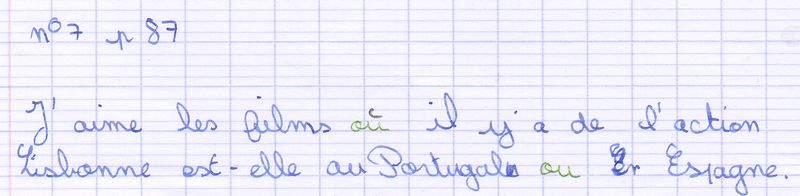 n°7 p 87
J'aime les films où il y'a de l'action
Lisbonne est-elle au Portugal ou En Espagne.